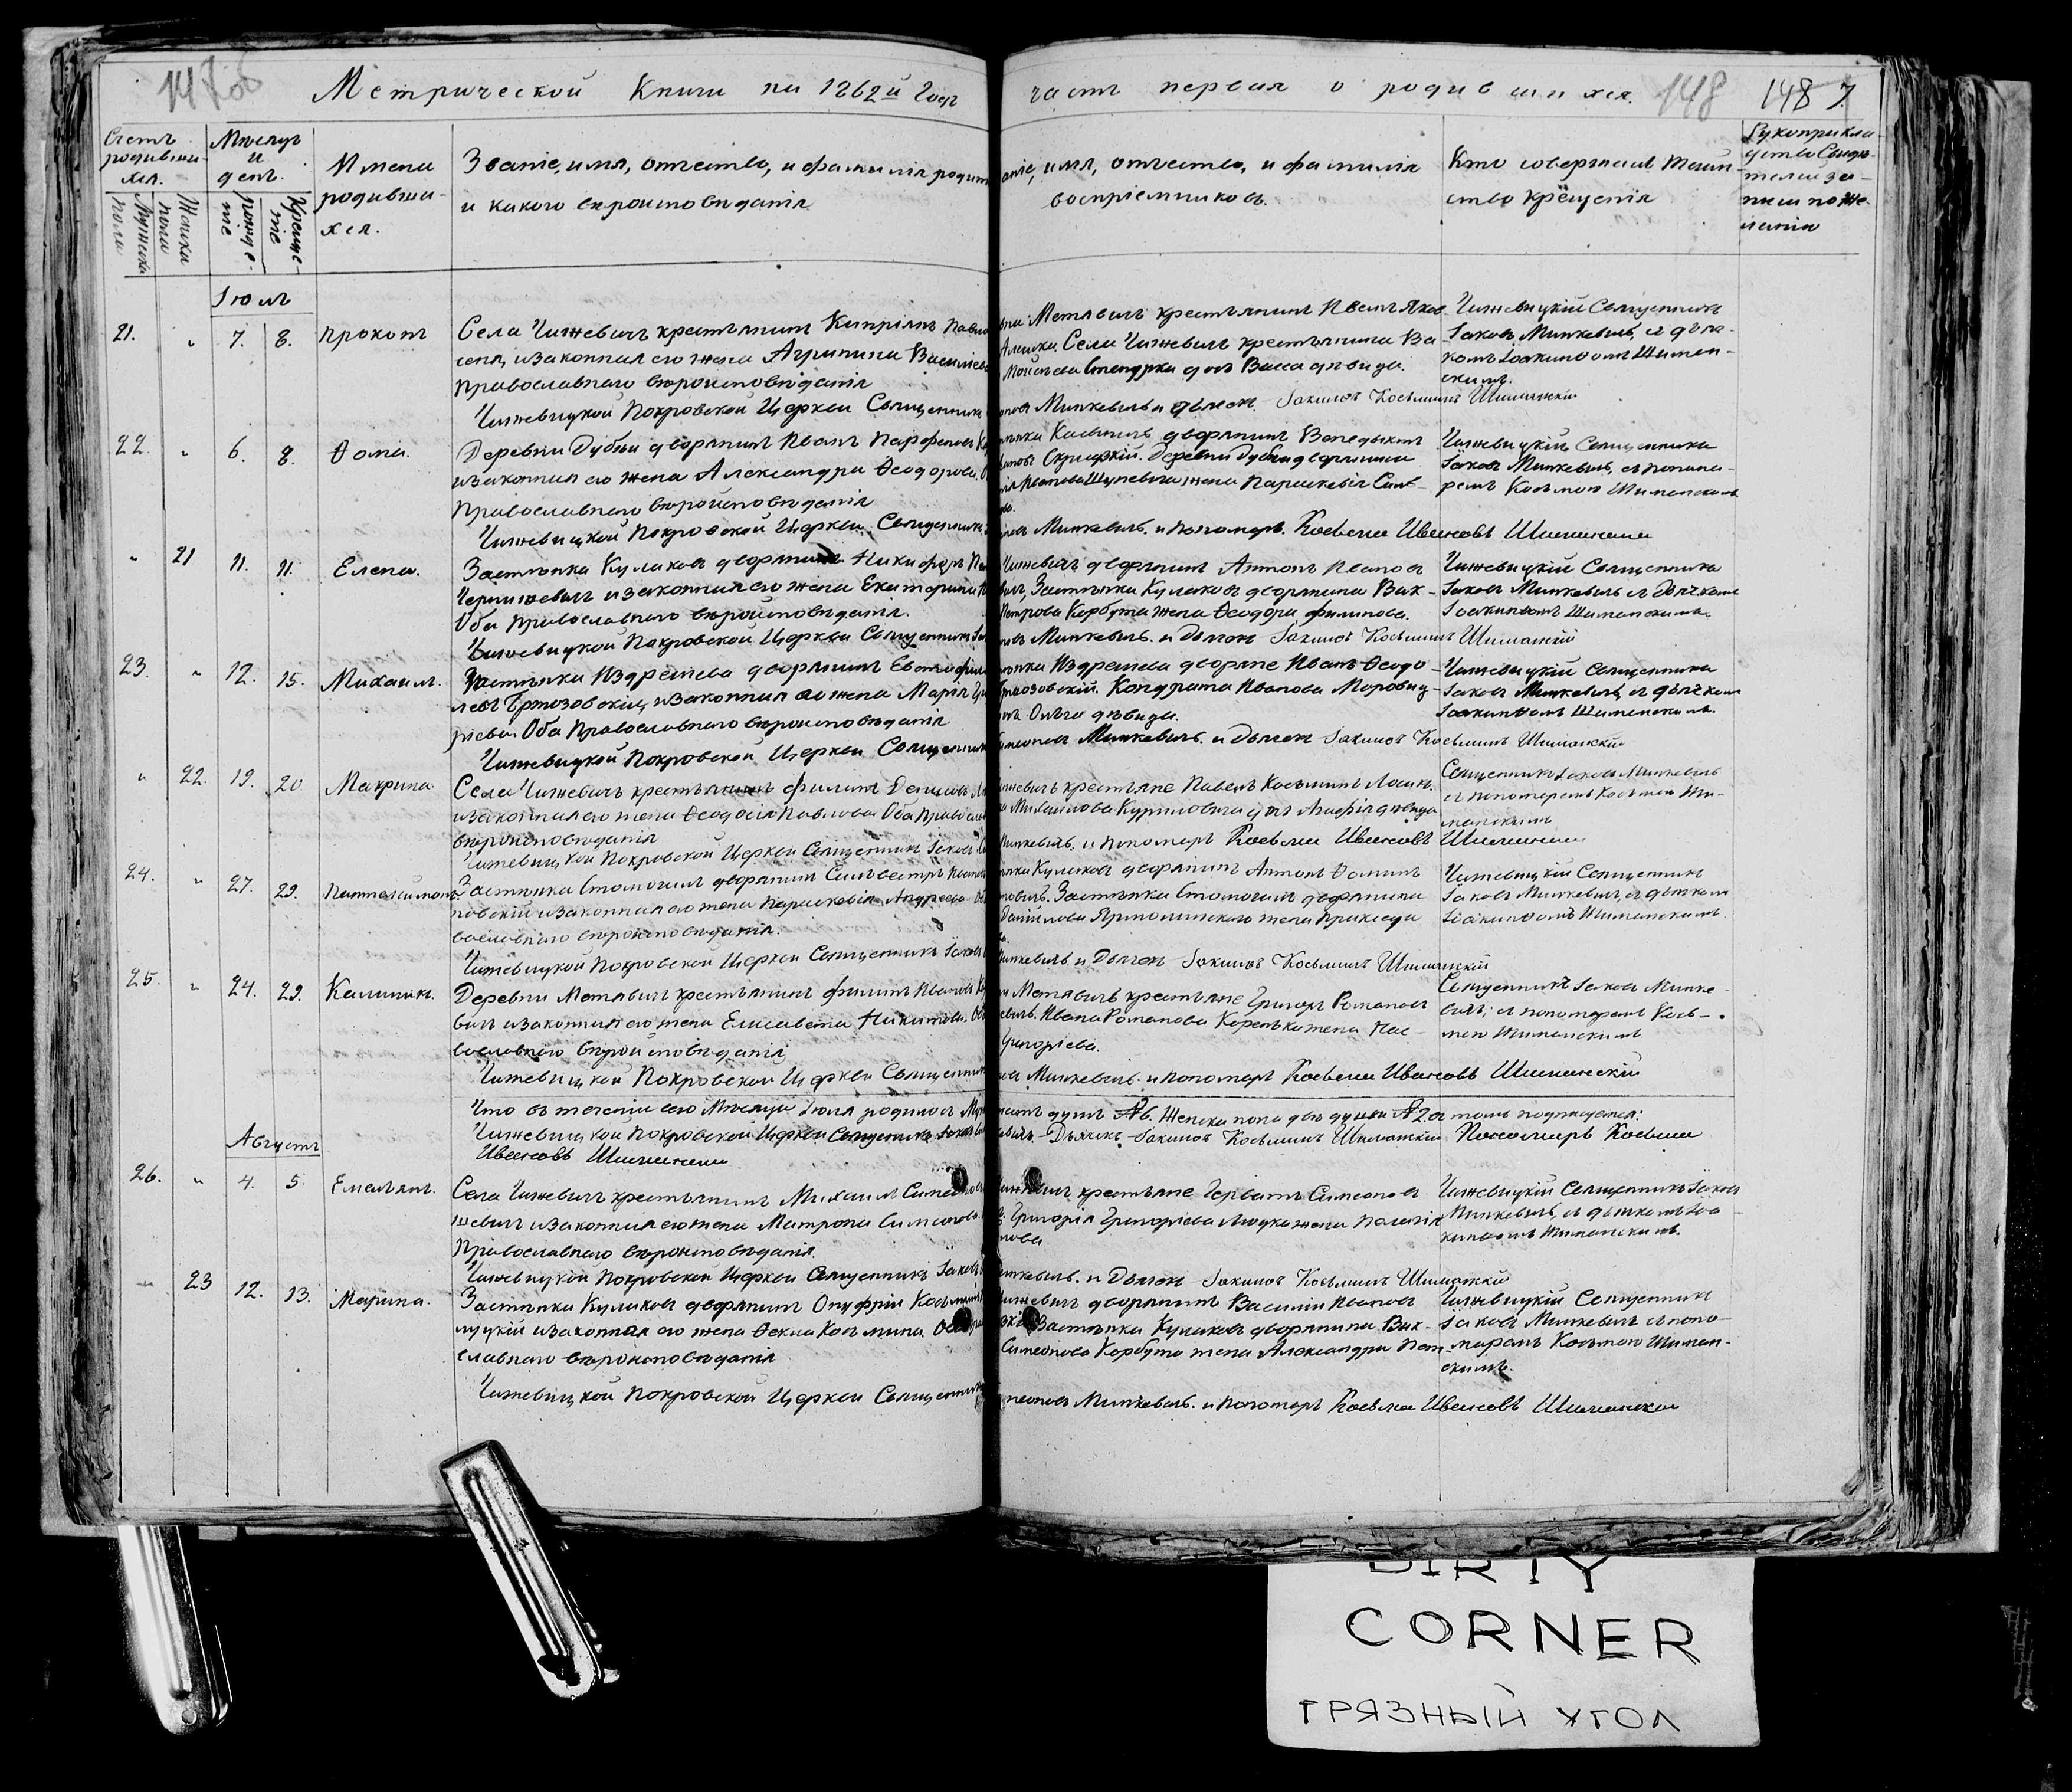 147об
Метрической Книги на 1862й Годъ
часть первая о родившихся.
148
148
7.
Счетъ родивши-
хся.
Мужеска пола
Женска пола
Мѣсяцъ
и
день.
рожде-
ніе
Креще-
ніе
Имена
родивши-
хся.
Званіе, имя, отчество, и фамилія родит
и какого вѣроисповѣданія
аніе, имя, отчество, и фамилія
воспріемниковъ.
Кто совершалъ таин-
ство крещенія
Рукоприкла-
дство Свидѣ-
телей за-
писи по же-
ланію
Іюль
21. " 7. 8. Прокопъ
Села Чижевичъ крестьянинъ Кипріянъ Павло
сеня, и законная его жена Агрипина Василіева
Православнаго вѣроисповѣданія
Чижевицкой Покровской Церкви Священникъ
Метявичъ крестьянинъ Иванъ Яков
Села Чижевичъ крестьянина Ва
дочь Васса дѣвица.
Минкевичъ и Дьячекъ Іакинѳъ Косьминъ Шиманскій
Чижевицкій Священникъ
Іаковъ Минкевичъ, съ дьяч-
комъ Іоакинѳомъ Шиман-
скимъ.
22. " 6. 8. Ѳома.
Деревни Дубеи дворянинъ Иванъ Парфеновъ
и законная его жена Александра Ѳеодорова.
Православнаго вѣроисповѣданія
Чижевицкой Покровской Церкви Священникъ
дворянинъ Венедыктъ
Деревни Дубеи дворянина
жена Параскевія Силь-
Минкевичъ. и пономарь. Косьма Ивановъ Шиманскій
Чижевицкій Священникъ
Іаковъ Минкевичъ, съ понома-
ремъ Косьмою Шиманскимъ
" 21 11. 11. Елена.
Застѣнка Кулаковъ дворянинъ Никифоръ
и законная его жена Екатерина
Оба Православнаго вѣроисповѣданія.
Чижевицкой Покровской Церкви Священникъ
Чижевичъ дворянинъ Антонъ Ивановъ
Застѣнка Кулаковъ дворянина Вик-
Петрова Корбута жена Ѳеодора Филипова.
Минкевичъ. и Дьячекъ Іакинѳъ Косьминъ Шиманскій
Чижевицкій Священникъ
Іаковъ Минкевичъ съ Дьячкомъ
Іоакинѳомъ Шиманскимъ
23. " 12. 15. Михаилъ.
Застѣнка Издрешева дворянинъ
и законная его жена Марія Гри
ріева. Оба Православнаго вѣроисповѣданія
Чижевицкой Покровской Церкви Священникъ
Издрешева дворяне Иванъ Ѳеодо-
Кондрата Иванова
Ольга дѣвица.
Симеоновъ Минкевичъ. и Дьячекъ Іакинѳъ Косьминъ Шиманскій
Чижевицкій Священникъ
Іаковъ Минкевичъ, съ дьячкомъ
Іоакинѳомъ Шиманскимъ.
" 22. 19. 20 Макрина
Села Чижевичъ крестьянинъ Филипъ Денисовъ
и законная его жена Ѳеодосія Павлова Оба Правосла
вѣроисповѣданія
Чижевицкой Покровской Церкви Священникъ Іаковъ
крестьяне Павелъ Косьминъ
Михаилова Куриловича дочь Марія дѣвица
Минкевичъ. и пономарь Косьма Ивановъ Шиманскій
Священникъ Іаковъ Минкевичъ
съ пономаремъ Косьмою Ши-
манскимъ
24. " 27. 29. Пантелеймонъ.
Застѣнка Стомогилъ дворянинъ Сильвестръ
и законная его жена Параскевія Андреева
вославнаго вѣроисповѣданія.
Чижевицкой Покровской Церкви Священникъ Іаковъ
Кулаковъ дворянинъ Антонъ Ѳоминъ
Застѣнка Стомогилъ дворянина
Даніилова жена Пракседа
Минкевичъ и Дьячекъ Іакинѳъ Косьминъ Шиманскій
Чижевицкій Священникъ
Іаковъ Минкевичъ, съ дьячкомъ
Іоакинѳомъ Шиманскимъ.
25. " 24. 29. Калиникъ.
Деревни Метявичъ крестьянинъ Филипъ Ивановъ
вичъ и законная его жена Елисавета Никитова. Об
вославнаго вѣроисповѣданія
Чижевицкой Покровской Церкви Священникъ
Метявичъ крестьяне Григорь Романовъ
Ивана Романова жена Нас-
Григоріева.
Минкевичъ. и пономарь Косьма Ивановъ Шиманскій
Священникъ Іаковъ Минке-
вичъ, съ пономаремъ Кось-
мою Шиманскимъ
Что въ теченіи сего Мѣсяца Іюля родилось
Чижевицкой Покровской Церкви Священникъ Іаковъ
Ивановъ Шиманскій
душъ №6. Женска пола двѣ души №2. въ томъ подписуемся:
Дьячекъ Іакинѳъ Косьминъ Шиманскій Пономарь Косьма
Августъ
26. " 4. 5. Емельянъ.
Села Чижевичъ крестьянинъ Михаилъ Симеоновъ
жевичъ и законная его жена Матрона Симеонова.
Православнаго вѣроисповѣданія.
Чижевицкой Покровской Церкви Священникъ Іаковъ
крестьяне Герватъ Симеоновъ
Григорія Григоріева жена Пелагія
Минкевичъ. и Дьячекъ Іакинѳъ Косьминъ Шиманскій
Чижевицкій Священникъ Іаковъ
Минкевичъ, съ дьячкомъ Іоа-
кинѳомъ Шиманскимъ.
" 23 12. 13. Марина.
Застѣнка Кулаковъ дворянинъ Онуфрій Косьминъ
луцкій и законная его жена Ѳекла Косьмина.
славнаго вѣроисповѣданія
Чижевицкой Покровской Церкви Священникъ
дворянинъ Василій Ивановъ
Застѣнка Кулаковъ дворянина Вик-
Симеонова Корбута жена Александра
Минкевичъ. и пономарь Косьма Ивановъ Шиманскій
Чижевицкій Священникъ
Іаковъ Минкевичъ съ поно-
маремъ Косьмою Шиман-
скимъ.
DIRTY
CORNER
ГРЯЗНЫЙ УГОЛ